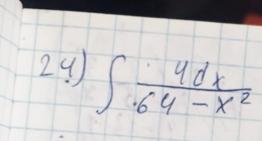 24) ∫ 4dx / 64 - x²